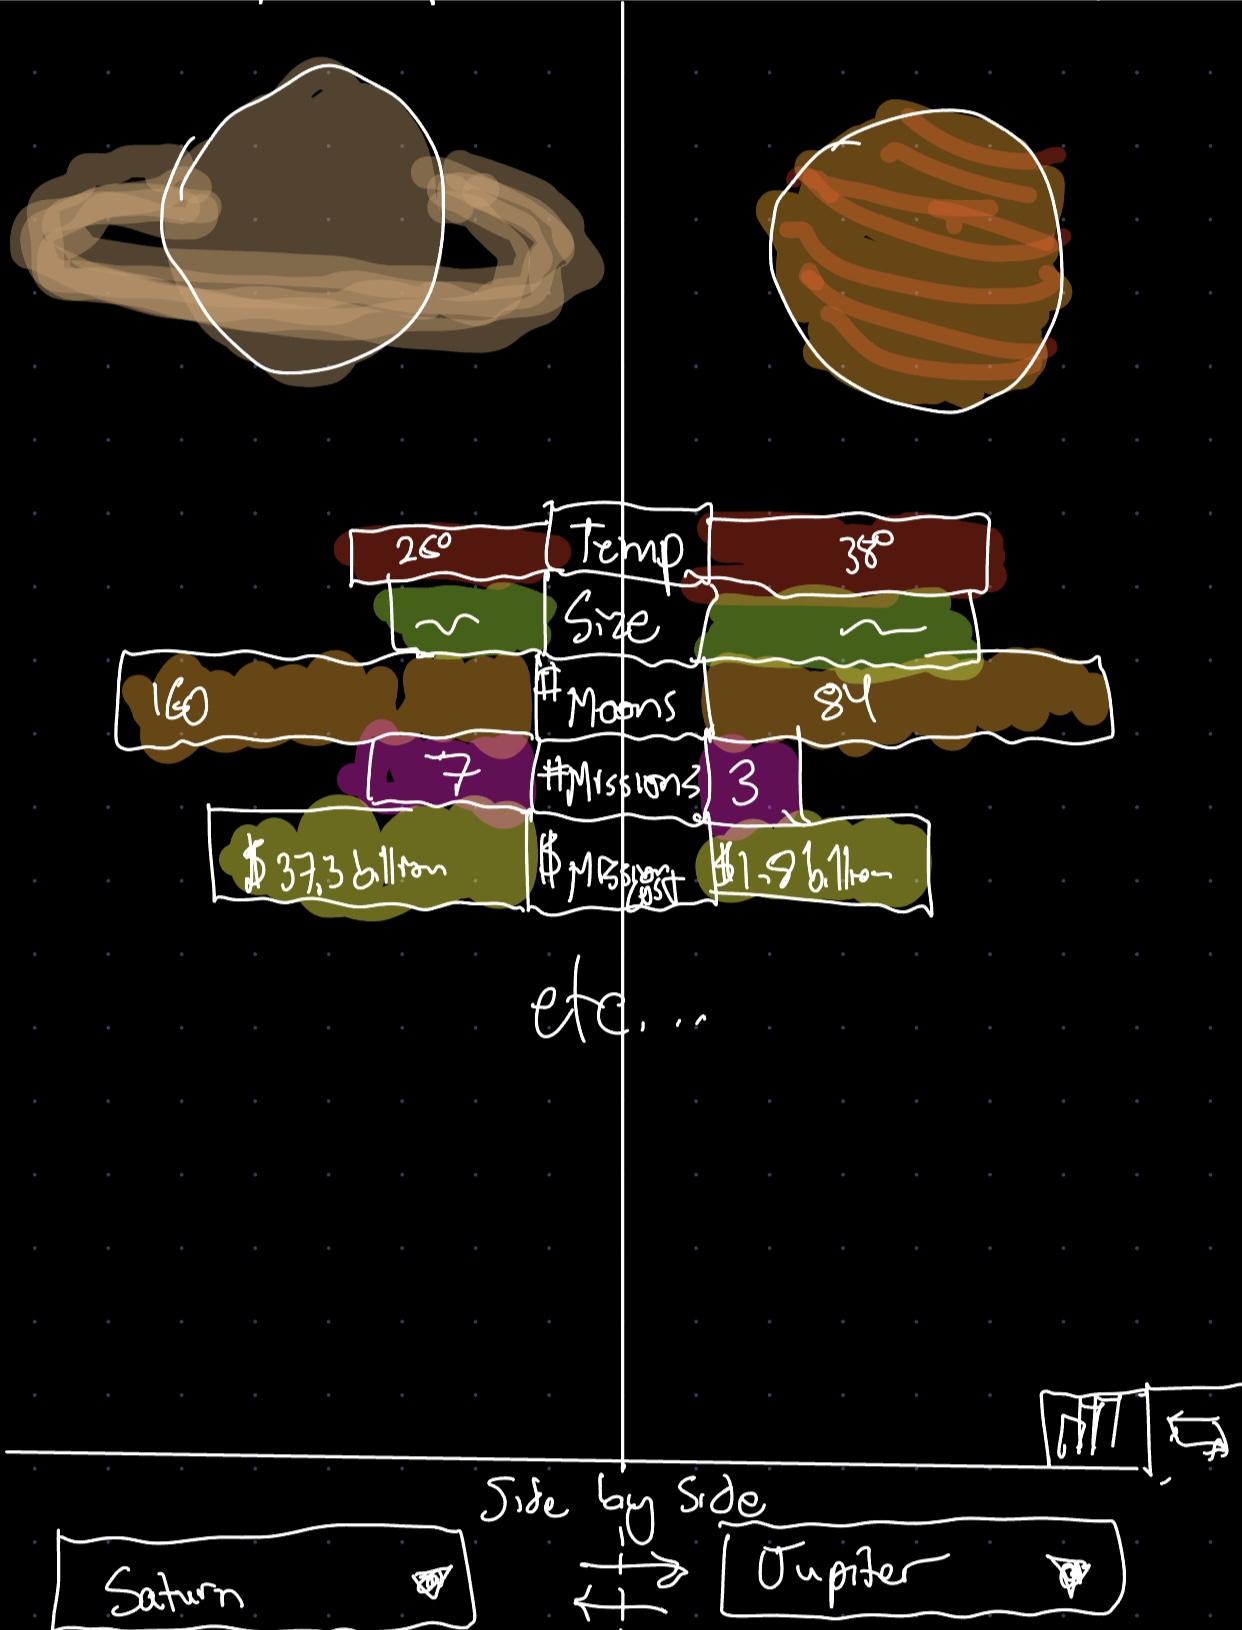 26° Temp 38°
Size
160 # Moons 84
7 #Missions 3
$37.3 billion $ Mission Cost $1.8 billion
etc...
Side by Side
Saturn Jupiter